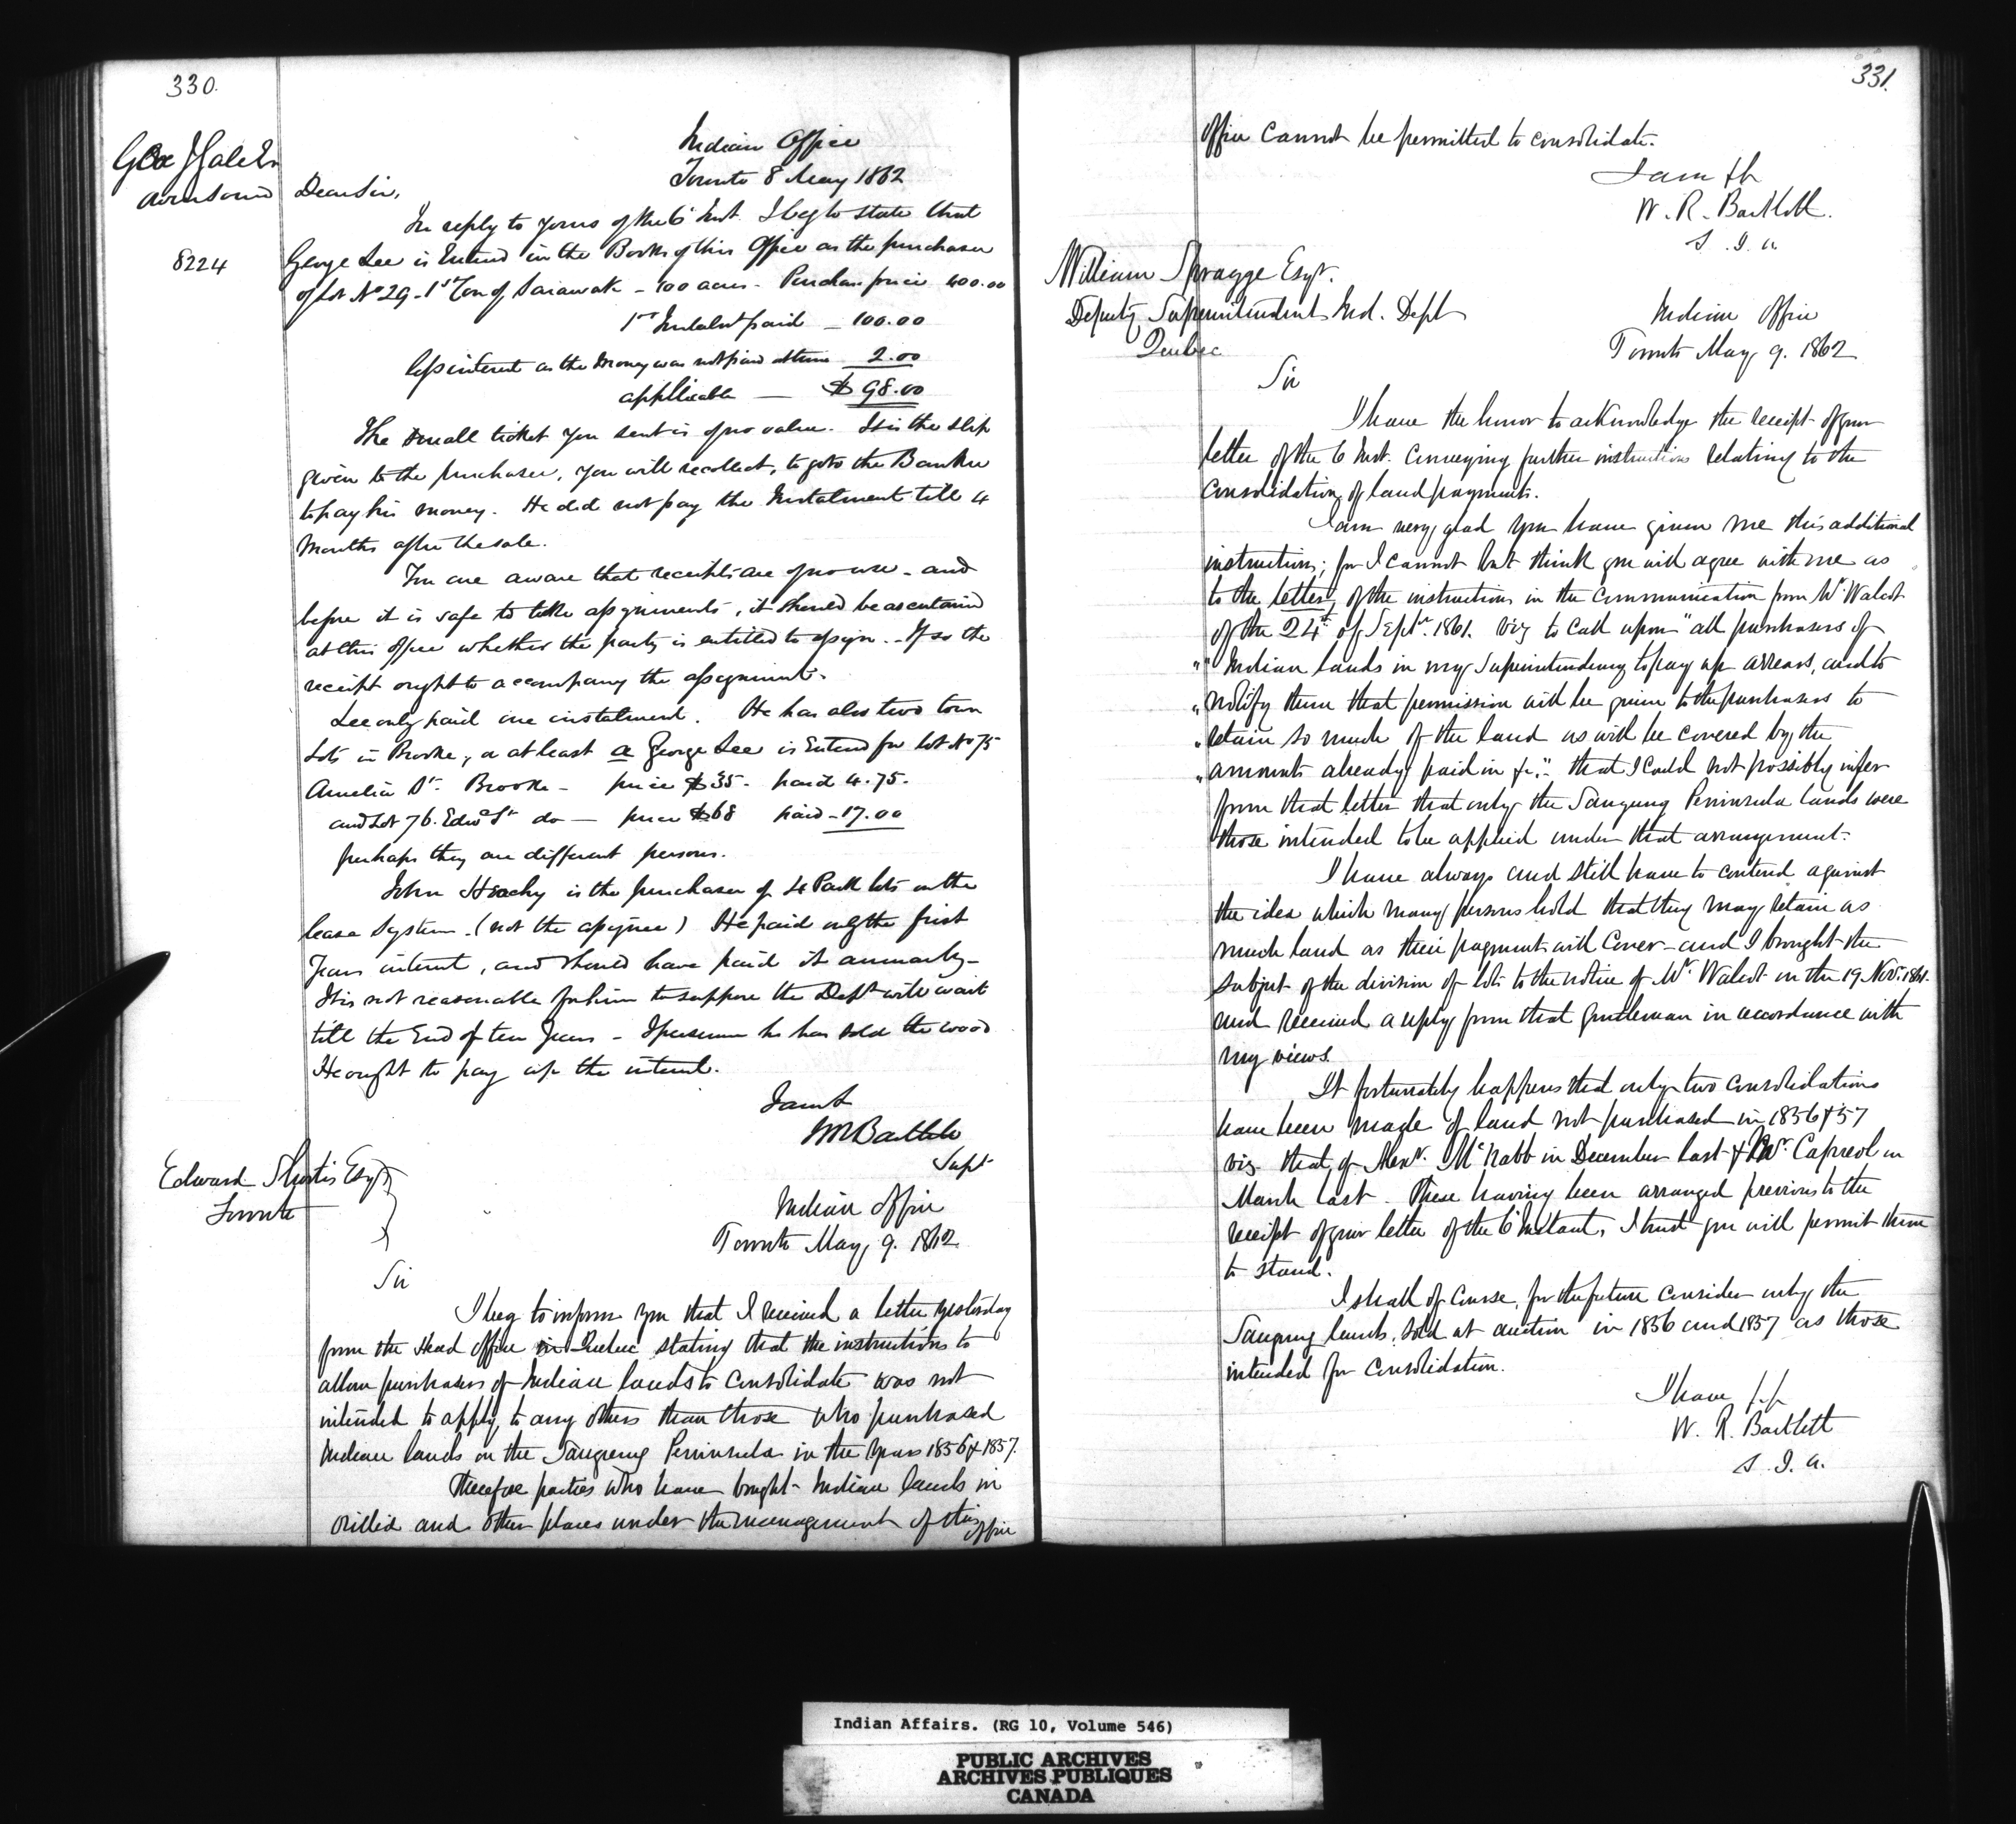 330.
Geo J Gale Esq
Owen Sound
Indian Office
Toronto 8 May 1862
Dear Sir,
In reply to yours of the 6 Inst. I beg to state that
8224
George Lee is Entered in the Books of this Office as the purchaser
of Lot No 29 - 1st Con of Sarawak - 100 acres - Purchase price 400.00
1st Instalmt paid - 100.00
Less interest as the money was not paid at time 2.00
applicable — $98.00
The small ticket you sent is of no value. It is the slip
given to the purchaser, you will recollect, to go to the Banker
to pay his money. He did not pay the Instalment till 4
Months after the sale.
You are aware that receipts are of no use - and
before it is safe to take assignments, it should be ascertained
at this office whether the party is entitled to assign. - If so the
receipt ought to accompany the assignment.
Lee only paid one instalment. He has also two town
Lots in Brooke, or at least a George Lee is Entered for Lot No 75
Amelia St. Brooke - price $35 - paid 4.75.
and Lot 76. Edwd St do — price $68 paid - 17.00
perhaps they are different persons.
John is the purchaser of 4 Park lots on the
lease System. (not the assignee) He paid only the first
Years interest, and should have paid it annually -
It is not reasonable for him to suppose the Dept will wait
till the End of ten Years - I presume he has sold the wood
He ought to pay up the interest.
I am &
WRBartlett
Supt
Edward Esqr
Toronto
Indian Office
Toronto May 9. 1862
Sir
I beg to inform you that I received a letter yesterday
from the Head Office in Quebec stating that the instructions to
allow purchasers of Indian lands to Consolidate was not
intended to apply to any others than those who purchased
Indian lands on the Saugeeng Peninsula in the years 1856 & 1857.
Therefore parties who have bought Indian lands in
Orillia and other places under the management of this office
331.
Office Cannot be permitted to consolidate.
I am &c
W. R. Bartlett.
S. I. A
William Spragge Esqr.
Deputy Superintendent Ind. Dept
Quebec
Indian Office
Toronto May 9. 1862
Sir
I have the honor to acknowledge the receipt of your
letter of the 6 Inst. Conveying further instructions relating to the
Consolidation of land payments.
I am very glad you have given me this additional
instruction; for I cannot but think you will agree with me as
to the letter, of the instructions in the Communication from Mr Walcot
of the 24th of Septr. 1861. viz to Call upon "all purchasers of
"Indian lands in my Superintendency to pay up arrears, and to
"notify them that permission will be given to the purchasers to
"retain so much of the land as will be covered by the
"amounts already paid in &c." that I could not possibly infer
from that letter that only the Saugeeng Peninsula lands were
those intended to be applied under that arrangement.
I have always and still have to contend against
the idea which many persons hold that they may retain as
much land as their payments will Cover - and I brought the
subject of the division of lots to the notice of Mr Walcot on the 19 Nov. 1861.
and received a reply from that gentleman in accordance with
my views.
It fortunately happens that only two consolidations
have been made of land not purchased in 1856 & 57
viz. that of Alexr. McNabb in December last & Mr. Capreol in
March last. These having been arranged previous to the
receipt of your letter of the 6 Instant, I trust you will permit them
to stand.
I shall of Course, for the future consider only the
Saugeeng lands, sold at auction in 1856 and 1857 as those
intended for consolidation.
I have &c
W. R. Bartlett
S. I. A.
Indian Affairs. (RG 10, Volume 546)
PUBLIC ARCHIVES
ARCHIVES PUBLIQUES
CANADA